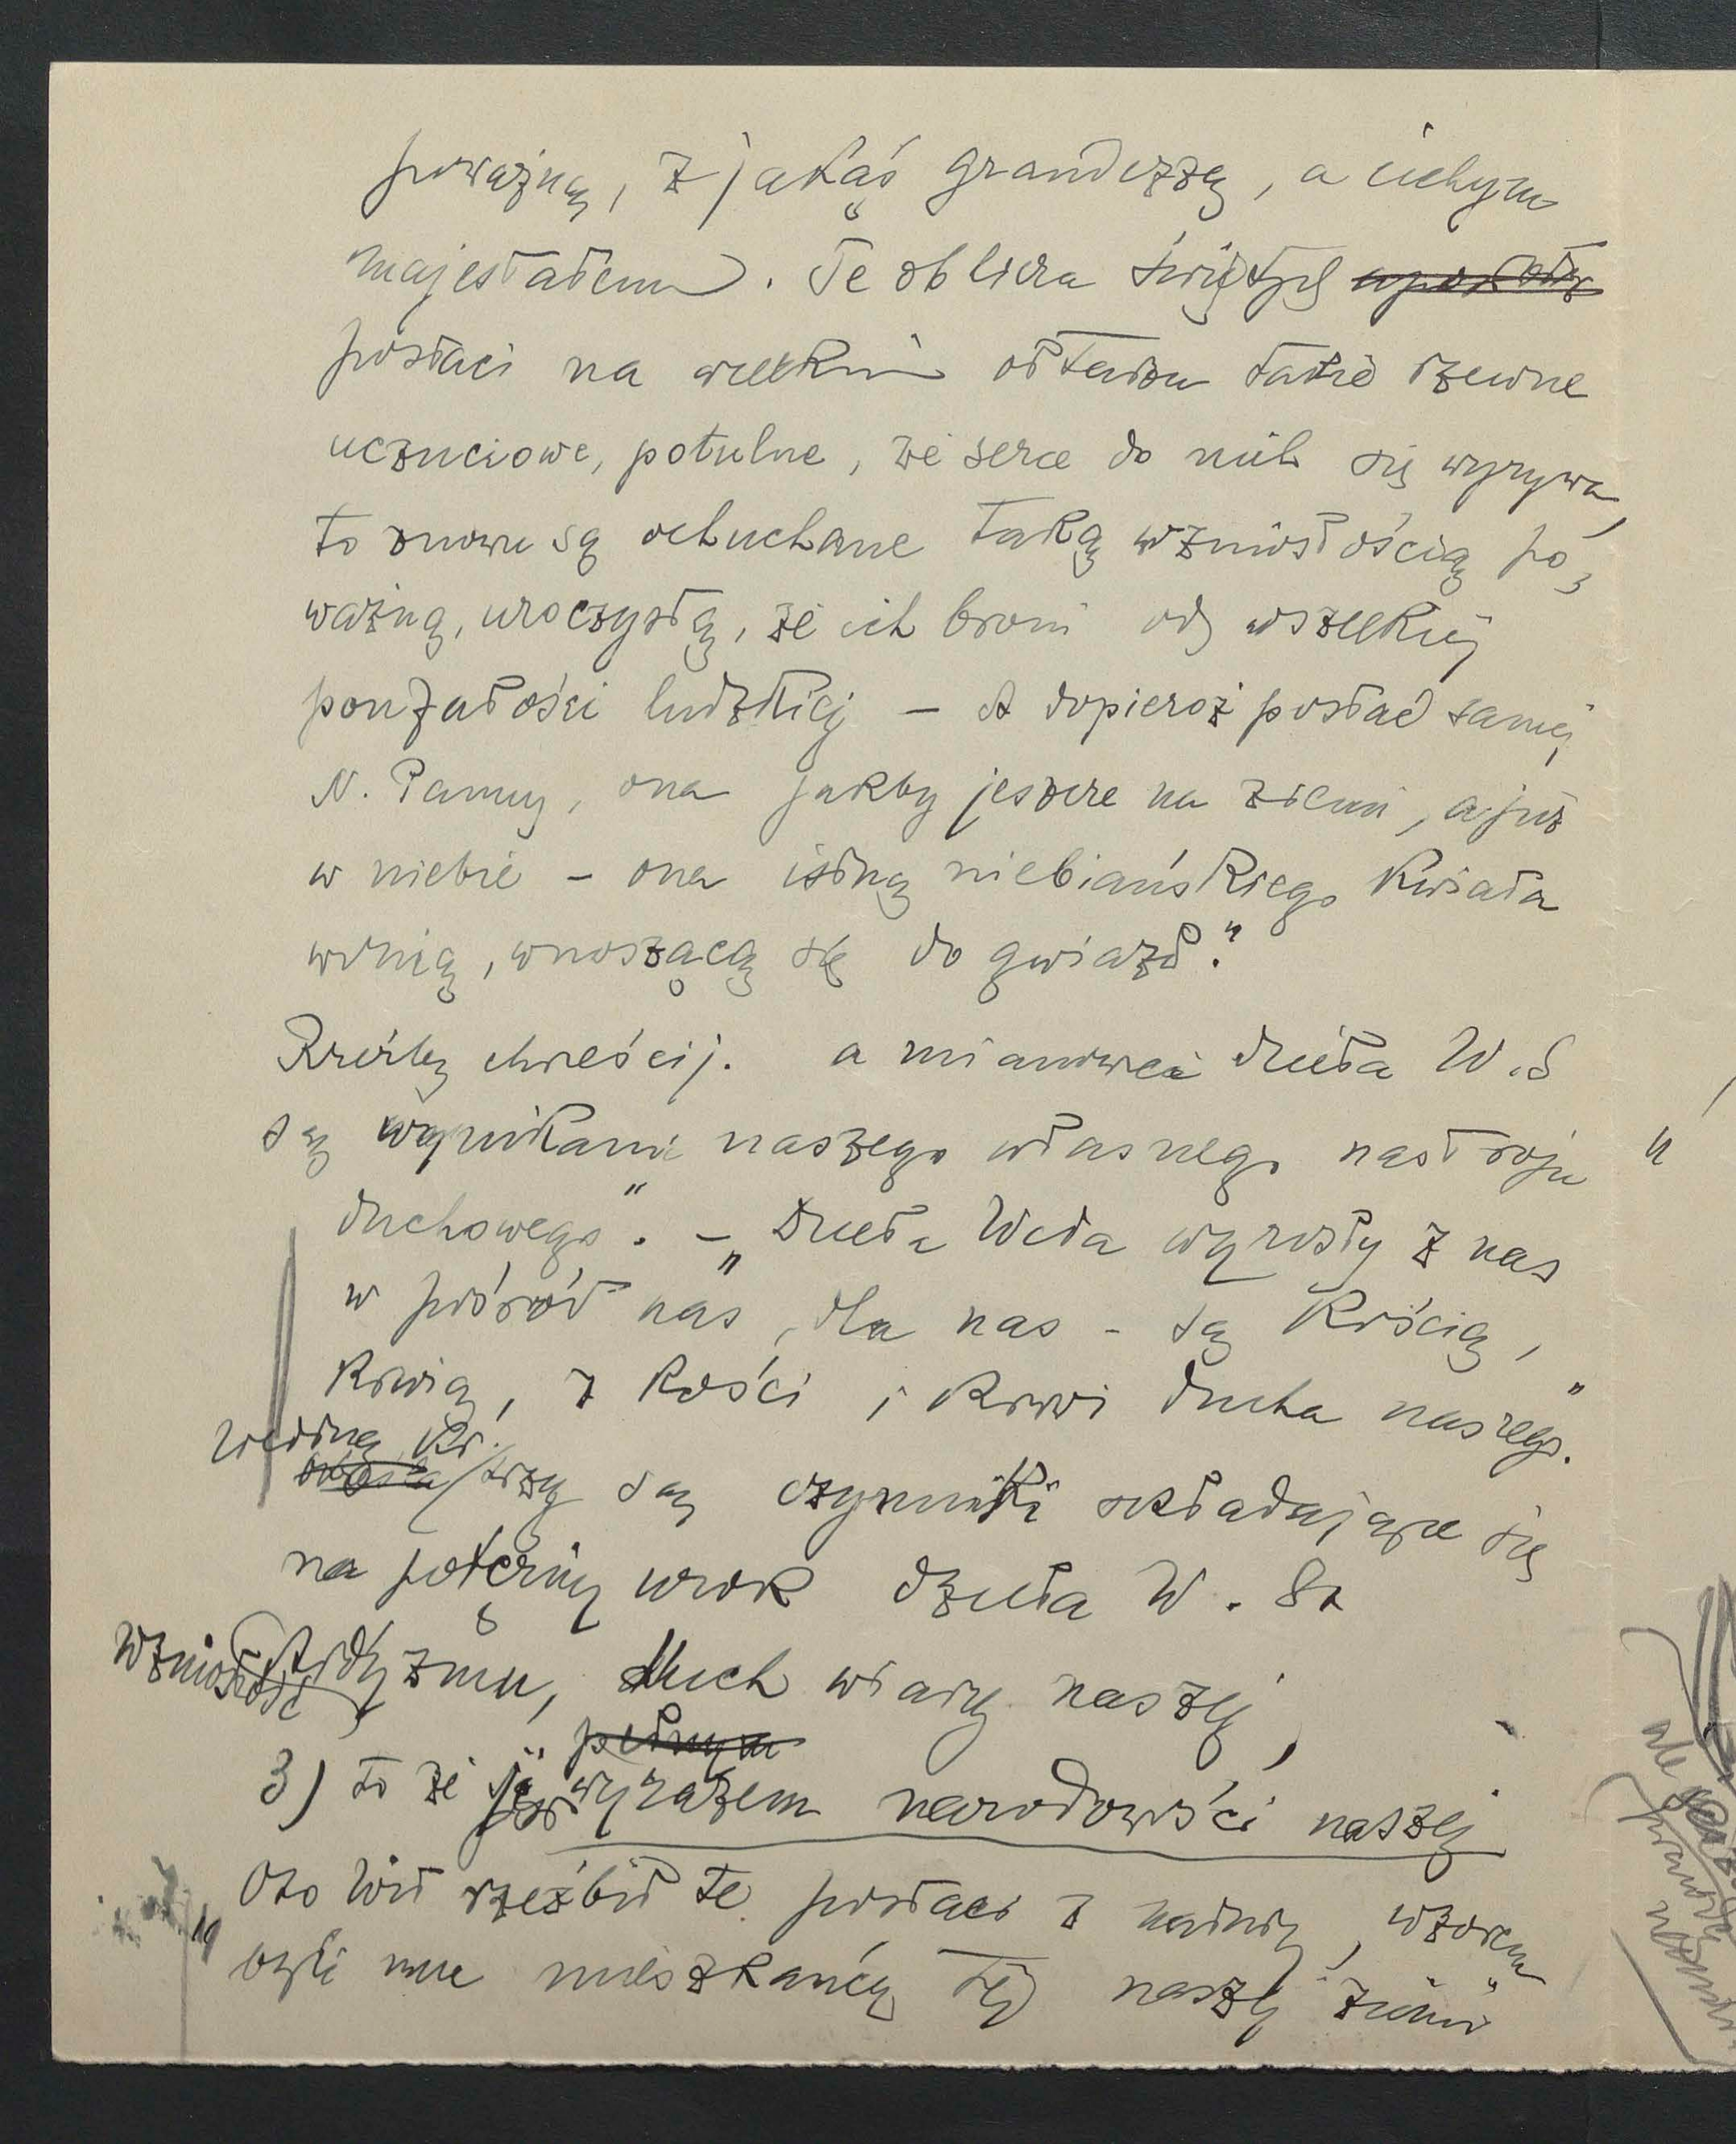 poważną, z jakąś grandezzą, a cichym
majestatem. Te oblicza świętych
postaci na wielkim ołtarzu takie rzewne
uczuciowe, potulne, że serce do nich się wyrywa,
to znowu są ochuchane taką wzniosłością po-
ważną, uroczystą, że ich broni od wszelkiej
poufałości ludzkiej – A dopieroż postać samej
N. Panny, ona jakby jeszcze na ziemi, a już
w niebie – ona istną niebiańskiego kwiata
wonią, wnoszącą się do gwiazd."
Rzeźby chrześcij. a mianowicie dzieła W. S
są wynikami naszego własnego nastroju
duchowego". – „Dzieła Wita wyrosły z nas
w pośród nas, dla nas – są kością,
krwią, z kości i krwi ducha naszego."
Według Kr.
trzy są czynniki składające się
na potężny urok dzieła W. St
wzniosłość
artyzmu, duch wiary naszej,
3) to że są wyrazem narodowości naszej
Oto Wit rzeźbił te postaci z natury, wzorem
„byli mu mieszkańcy tej naszej ziemi"